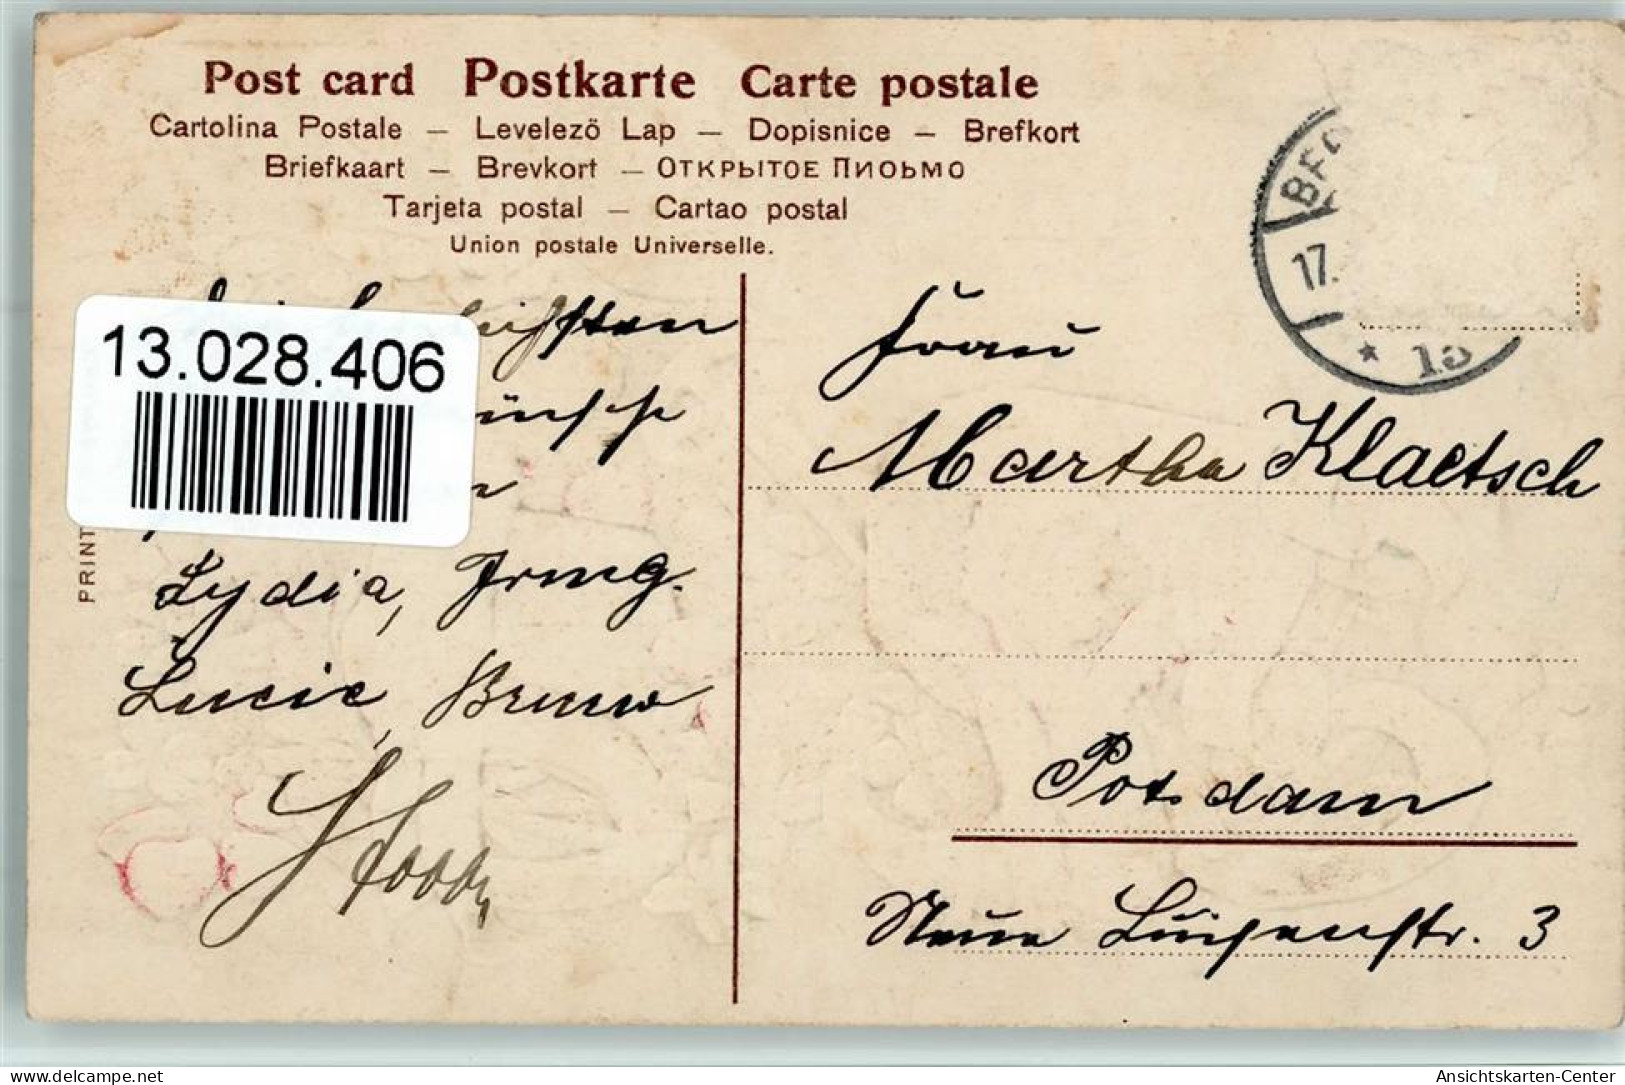 Post card Postkarte Carte postale
Cartolina Postale – Levelezö Lap – Dopisnice – Brefkort
Briefkaart – Brevkort – ОТКРЫТОЕ ПИОЬМО
Tarjeta postal – Cartao postal
Union postale Universelle.
17.
* 15
13.028.406
PRINT
Lydia, Irmg.
Lucie, Bruno
Frau
Martha Klaetsch
Potsdam
Neue Luisenstr. 3
delcampe.net
Ansichtskarten-Center